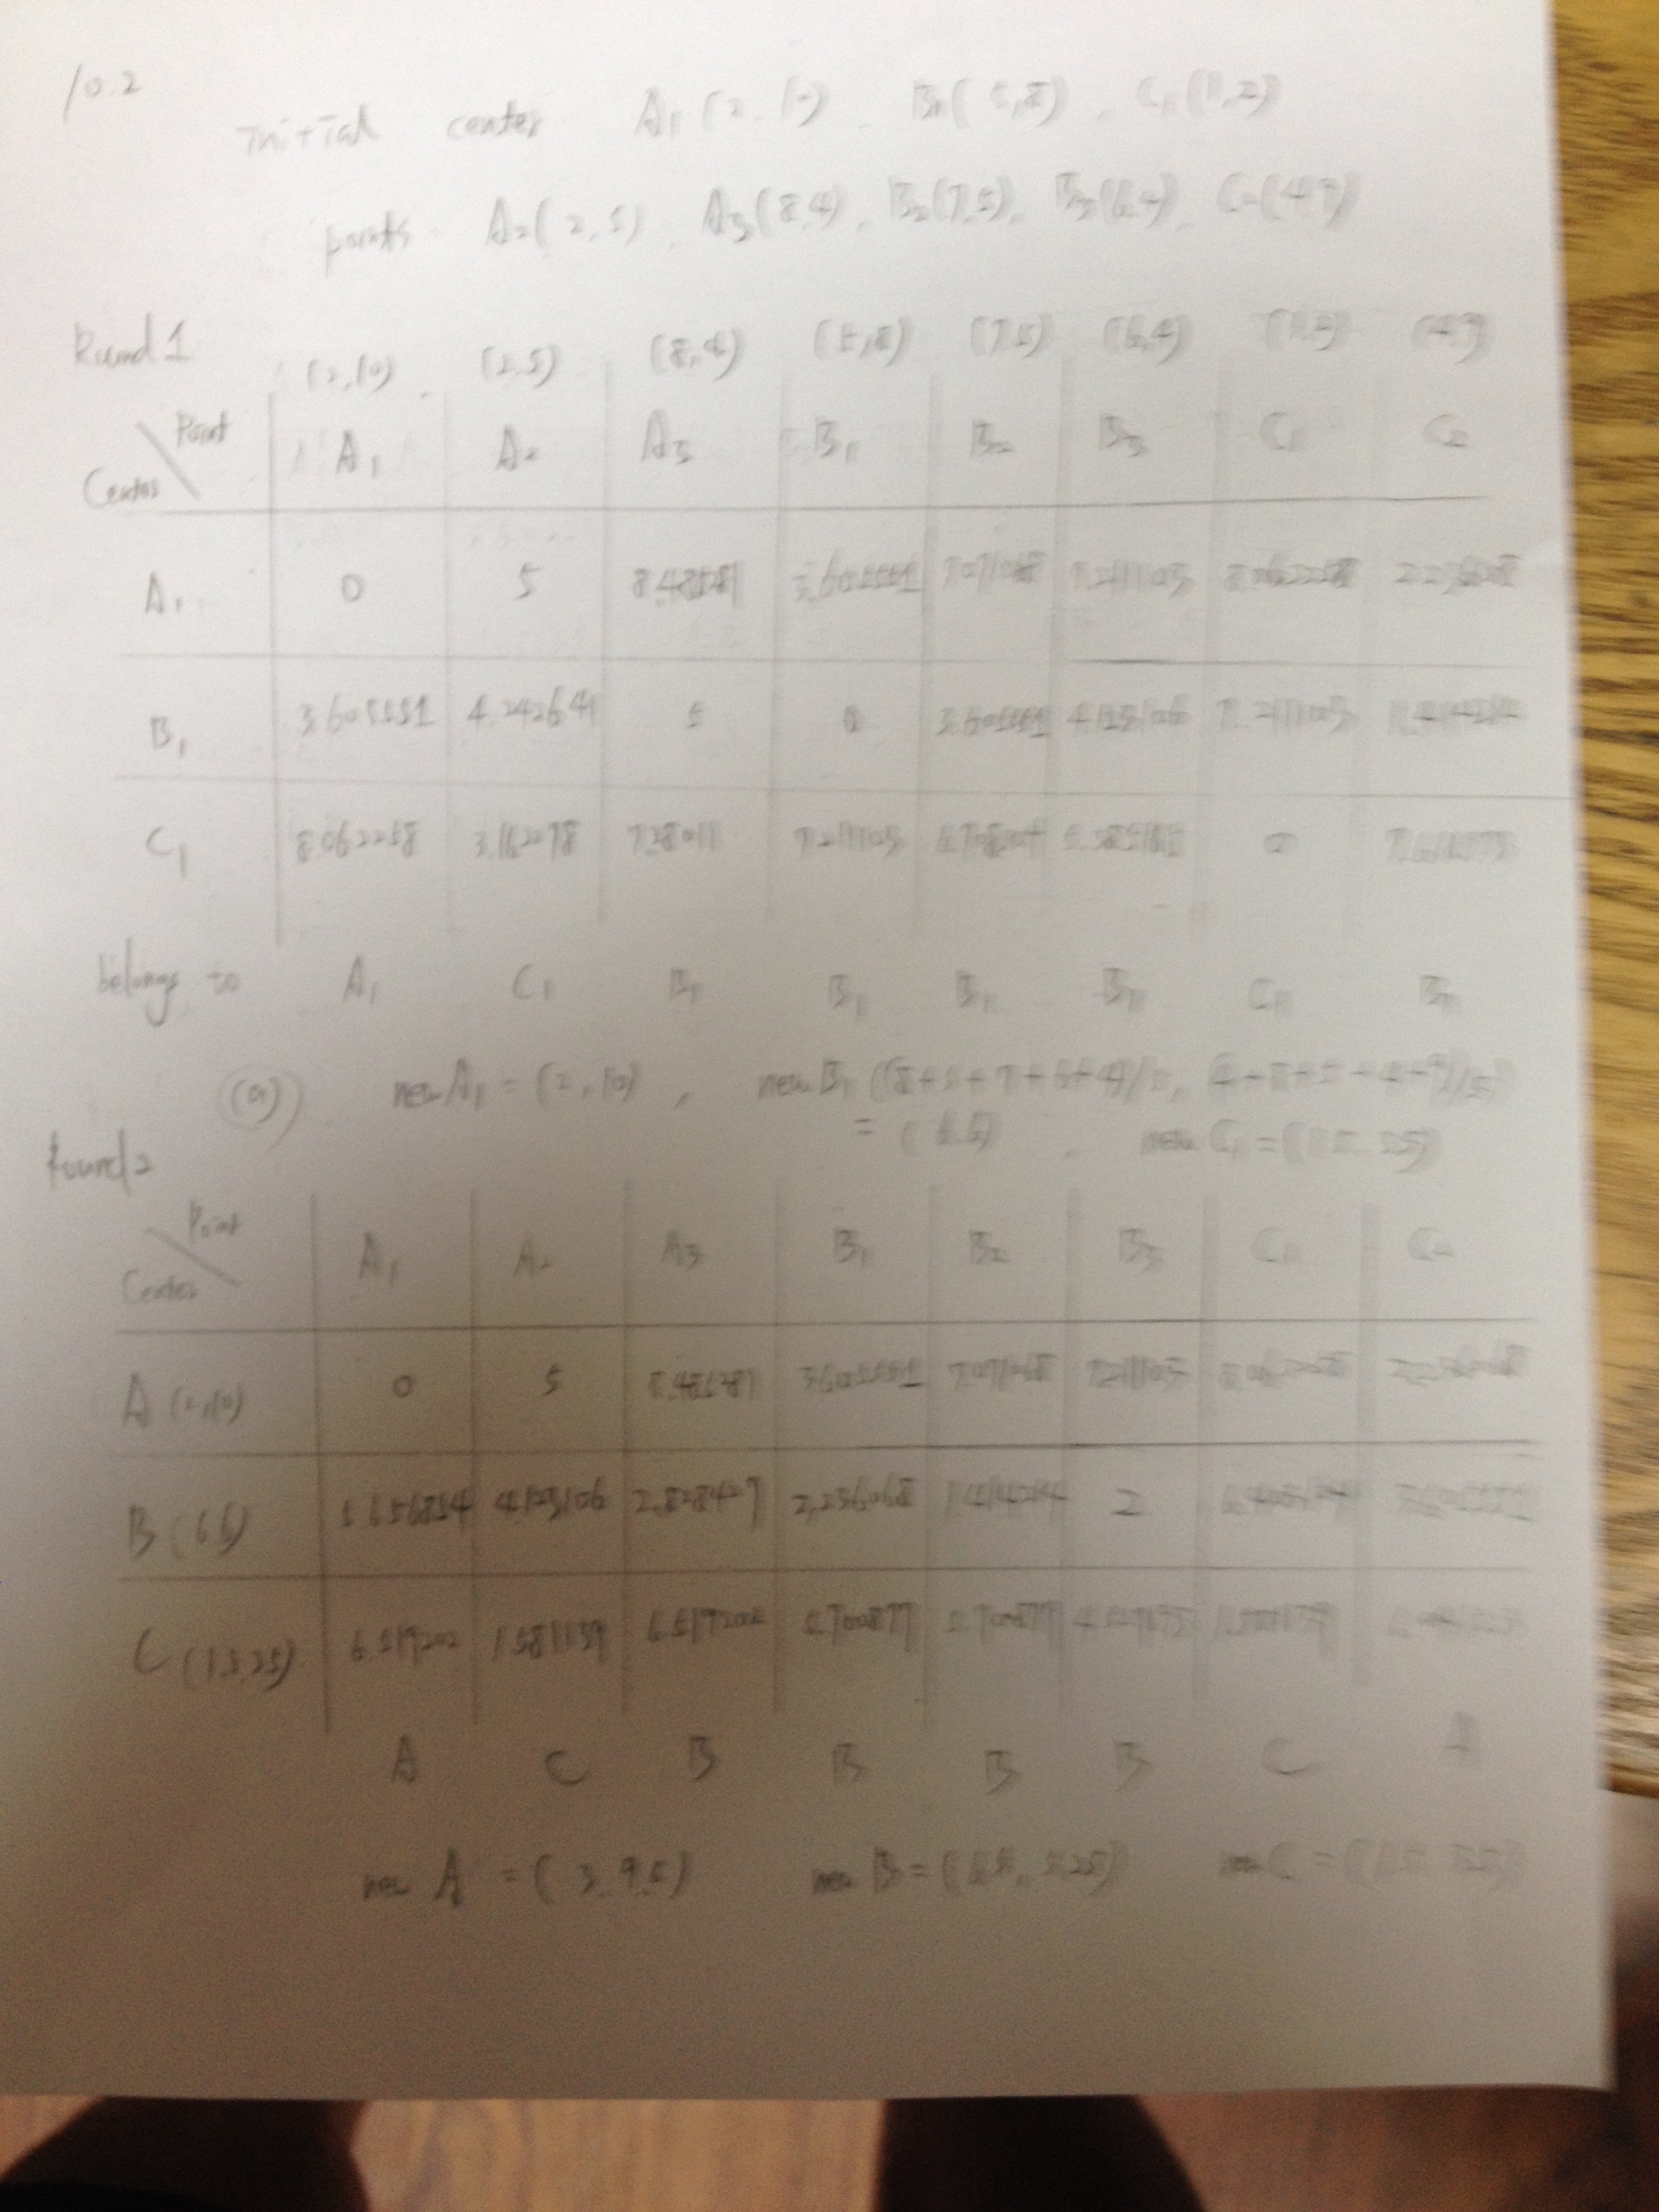 10.2
Initial center A1 (2,10), B1 (5,8), C1 (1,2)
points A2 (2,5), A3 (8,4), B2 (7,5), B3 (6,4), C2 (4,9)
Round 1
(2,10) (2,5) (8,4) (5,8) (7,5) (6,4) (1,2) (4,9)
Point
Center A1 A2 A3 B1 B2 B3 C1 C2
A1 0 5 8.485281 3.605551 7.071068 7.211103 8.062258 2.236068
B1 3.605551 4.242641 5 0 3.605551 4.123106 7.211103 1.414214
C1 8.062258 3.162278 7.28011 7.211103 6.708204 5.385165 0
belongs to A1 C1 B1 B1 B1 B1 C1 B1
(a) new A1 = (2,10), new B1 ((8+5+7+6+4)/5, (4+8+5+4+9)/5)
= (6,6), new C1 = (1.5, 3.5)
Round 2
Point
Center A1 A2 A3 B1 B2 B3 C1 C2
A (2,10) 0 5 8.485281 3.605551 7.071068 7.211103 8.062258 2.236068
B (6,6) 5.656854 4.123106 2.828427 2.236068 1.414214 2 6.403124 3.605551
C (1.5,3.5) 6.519202 1.581139 6.519202 5.700877 5.700877
A C B B B B C A
new A = (3, 9.5) new B = (6.5, 5.25) new C = (1.5, 3.5)